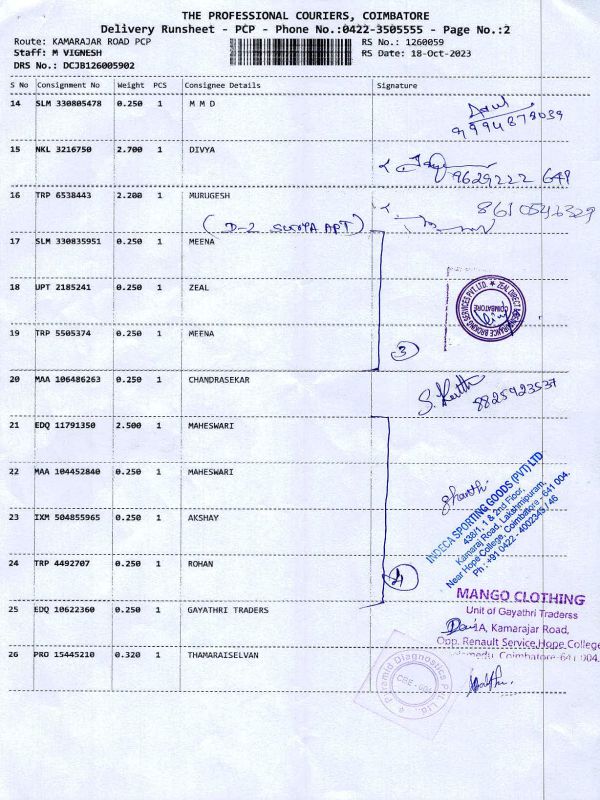 THE PROFESSIONAL COURIERS, COIMBATORE
Delivery Runsheet - PCP - Phone No.:0422-3505555 - Page No.:2
Route: KAMARAJAR ROAD PCP
RS No.: 1260059
Staff: M VIGNESH
RS Date: 18-Oct-2023
DRS No.: DCJB126005902
S No Consignment No Weight PCS Consignee Details Signature
14 SLM 330805478 0.250 1 M M D
15 NKL 3216750 2.700 1 DIVYA
9629222 649
16 TRP 6538443 2.200 1 MURUGESH
8610546329
(D-2 SURYA APT)
17 SLM 330835951 0.250 1 MEENA
18 UPT 2185241 0.250 1 ZEAL
ZEAL DIRECT INSURANCE BROKING SERVICES PVT. LTD.
COIMBATORE
19 TRP 5505374 0.250 1 MEENA
3
20 MAA 106486263 0.250 1 CHANDRASEKAR
8825923537
21 EDQ 11791350 2.500 1 MAHESWARI
22 MAA 104452840 0.250 1 MAHESWARI
23 IXM 504855965 0.250 1 AKSHAY
INDECA SPORTING GOODS (PVT) LTD
438/1, 1 & 2nd Floor,
Kamaraj Road, Lakshmipuram,
Near Hope College, Coimbatore - 641 004.
Ph : +91 0422 - 4002345 / 46
24 TRP 4492707 0.250 1 ROHAN
4
25 EDQ 10622360 0.250 1 GAYATHRI TRADERS
MANGO CLOTHING
Unit of Gayathri Traderss
A, Kamarajar Road,
Opp. Renault Service,Hope College
Coimbatore-641 004.
26 PRO 15445210 0.320 1 THAMARAISELVAN
Pyramid Diagnostics Pvt. Ltd.
CBE - 604